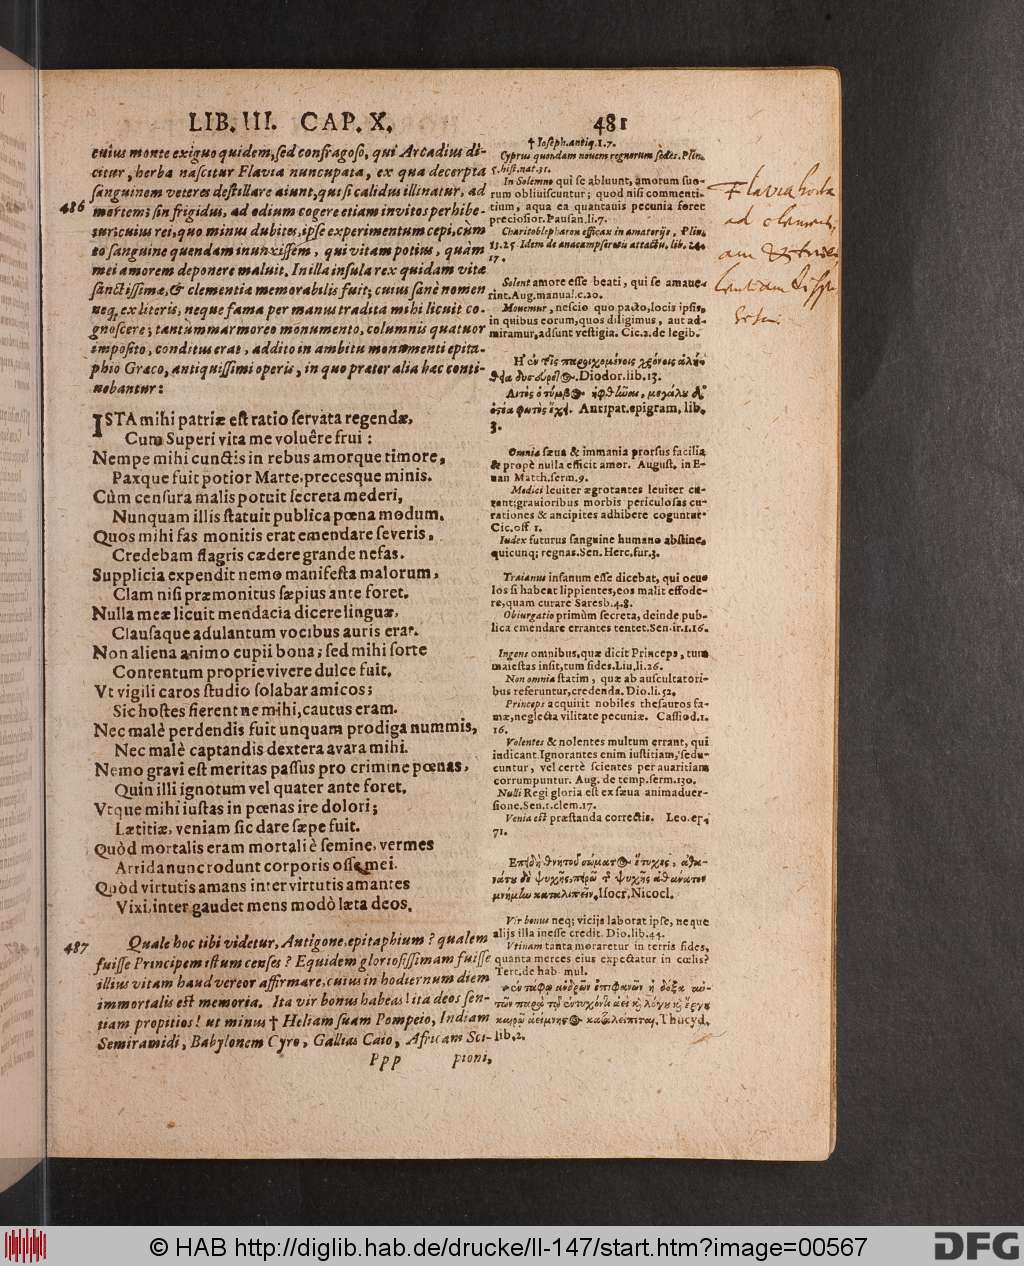 LIB. III. CAP. X. 481
cuius monte exiguo quidem, sed confragoso, qui Arcadius di-
citur, herba nascitur Flavia nuncupata, ex qua decerpta
sanguinem veteres destillare aiunt, qui si calidus illinatur, ad
486 mortem; sin frigidus, ad odium cogere etiam invitos perhibe-
tur: cuius rei, quo minus dubites, ipse experimentum cepi, cùm
eo sanguine quendam inunxissem, qui vitam potius, quàm
mei amorem deponere maluit. In illa insula rex quidam vitæ
sanctissimæ, & clementia memorabilis fuit; cuius sanè nomen
neq; ex literis, neque fama per manus tradita mihi licuit co-
gnoscere; tantùm marmoreo monumento, columnis quatuor
imposito, conditus erat, addito in ambitu monumenti epita-
phio Græco, antiquissimi operis, in quo præter alia hæc conti-
nebantur:
ISTA mihi patriæ est ratio servata regendæ,
Cum Superi vita me voluêre frui:
Nempe mihi cunctis in rebus amorque timore,
Paxque fuit potior Marte, precesque minis.
Cùm censura malis potuit secreta mederi,
Nunquam illis statuit publica pœna modum.
Quos mihi fas monitis erat emendare severis,
Credebam flagris cædere grande nefas.
Supplicia expendit nemo manifesta malorum,
Clam nisi præmonitus sæpius ante foret.
Nulla meæ licuit mendacia dicere linguæ,
Clausaque adulantum vocibus auris erat.
Non aliena animo cupii bona; sed mihi sorte
Contentum proprie vivere dulce fuit.
Vt vigili caros studio solabar amicos;
Sic hostes fierent ne mihi, cautus eram.
Nec malè perdendis fuit unquam prodiga nummis,
Nec malè captandis dextera avara mihi.
Nemo gravi est meritas passus pro crimine pœnas,
Quin illi ignotum vel quater ante foret.
Vtque mihi iustas in pœnas ire dolori;
Lætitiæ, veniam sic dare sæpe fuit.
Quòd mortalis eram mortali è semine, vermes
Arrida nunc rodunt corporis ossa mei.
Quòd virtutis amans inter virtutis amantes
Vixi, inter gaudet mens modò læta deos.
487 Quale hoc tibi videtur, Antigone, epitaphium? qualem
fuisse Principem istum censes? Equidem gloriosissimam fuisse
illius vitam haud vereor affirmare, cuius in hodiernum diem
immortalis est memoria. Ita vir bonus habeas! ita deos sen-
tiam propitios! ut minus † Heliam suam Pompeio, Indiam
Semiramidi, Babylonem Cyro, Gallias Caio, Africam Sci-
Ppp pioni,
† Ioseph. antiq. 1.7.
Cyprus quondam novem regnorum sedes. Plin.
5. hist. nat. 31.
In Solemno qui se abluunt, amorum suo-
rum obliviscuntur; quod nisi commenti-
tium, aqua ea quantauis pecunia foret
preciosior. Pausan. li. 7.
Charitoblepharon efficax in amatorijs, Plin.
13.25 Idem de anacampserotis attactu, lib. 24.
17.
Solent amore esse beati, qui se amaue-
rint. Aug. manual. c. 20.
Mouemur, nescio quo pacto, locis ipsis,
in quibus eorum, quos diligimus, aut ad-
miramur, adsunt vestigia. Cic. 2. de legib.
Ἡ ἐν τοῖς παροιχομένοις χρόνοις ἀλή-
θεια δυσεύρετος. Diodor. lib. 13.
Antipat. epigram. lib.
3.
Omnia sæua & immania prorsus facilia
& propè nulla efficit amor. August. in E-
uan Matth. serm. 9.
Medici leuiter ægrotantes leuiter cu-
rent: grauioribus morbis periculosas cu-
rationes & ancipites adhibere coguntur.
Cic. off 1.
Iudex futurus sanguine humano abstine,
quicunq; regnas. Sen. Herc. fur. 3.
Traianus insanum esse dicebat, qui ocu-
los si habeat lippientes, eos malit effode-
re, quam curare Saresb. 4.8.
Obiurgatio primùm secreta, deinde pub-
lica emendare errantes tentet. Sen. ir. 1.16.
Ingens omnibus, quæ dicit Princeps, tum
maiestas insit, tum fides. Liu. li. 26.
Non omnia statim, quæ ab auscultatori-
bus referuntur, credenda. Dio. li. 52.
Princeps acquirit nobiles thesauros fa-
mæ, neglecta vilitate pecuniæ. Cassiod. 1.
16.
Volentes & nolentes multum errant, qui
indicant. Ignorantes enim iustitiam, sedu-
cuntur, vel certè scientes per auaritiam
corrumpuntur. Aug. de temp. serm. 120.
Nulli Regi gloria est ex sæua animaduer-
sione. Sen. 1. clem. 17.
Venia est præstanda correctis. Leo. ep.
71.
Ἐπειδὴ θνητοῦ σώματος ἔτυχες, ἀθα-
νάτου δὲ ψυχῆς, πειρῶ τῆς ψυχῆς ἀθάνατον
μνήμην καταλιπεῖν. Isocr. Nicocl.
Vir bonus neq; vicijs laborat ipse, neque
alijs illa inesse credit. Dio. lib. 44.
Vtinam tanta moraretur in terris fides,
quanta merces eius expectatur in cœlis?
Tert. de hab mul.
Thucyd.
lib. 2.
Flavia herba
ad
© HAB http://diglib.hab.de/drucke/li-147/start.htm?image=00567
DFG